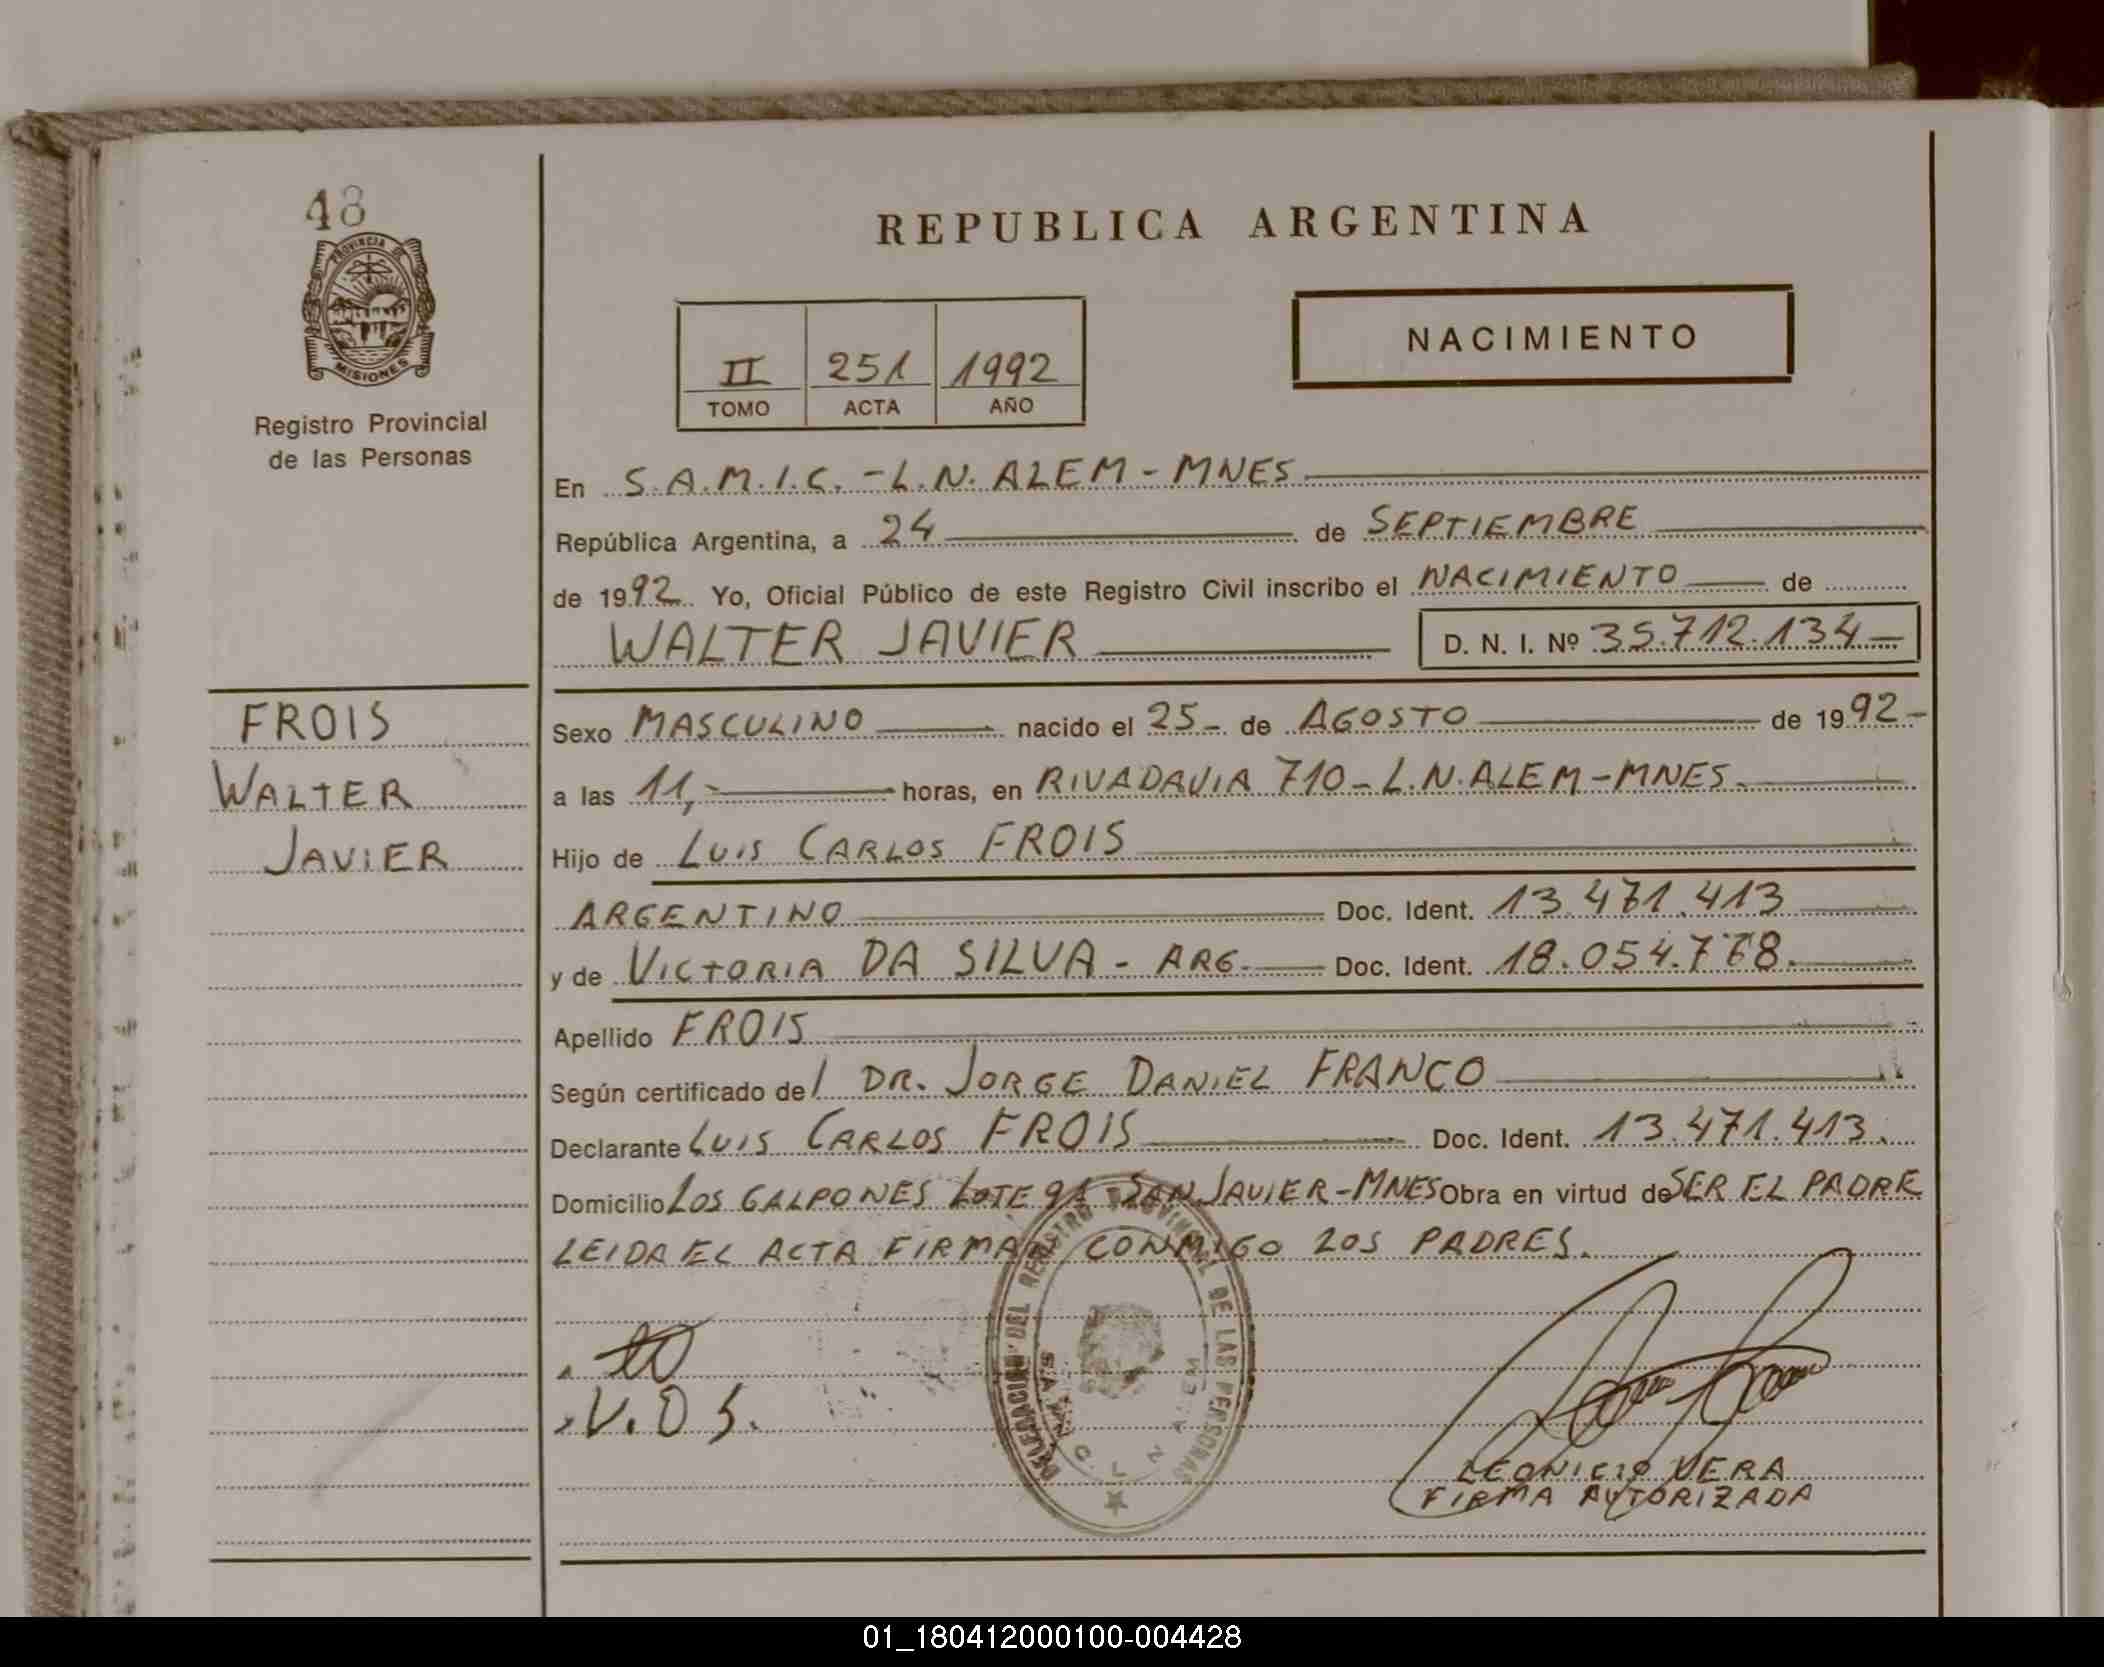 48
PROVINCIA DE
MISIONES
Registro Provincial
de las Personas
REPUBLICA ARGENTINA
II 251 1992
TOMO ACTA AÑO
NACIMIENTO
En S.A.M.I.C. - L.N. ALEM - MNES
República Argentina, a 24 de SEPTIEMBRE
de 1992 Yo, Oficial Público de este Registro Civil inscribo el NACIMIENTO de
WALTER JAVIER D. N. I. Nº 35.712.134
FROIS
WALTER
JAVIER
Sexo MASCULINO nacido el 25 de AGOSTO de 1992
a las 11,- horas, en RIVADAVIA 710 - L.N. ALEM - MNES.
Hijo de LUIS CARLOS FROIS
ARGENTINO Doc. Ident. 13.471.413
y de VICTORIA DA SILVA - ARG. Doc. Ident. 18.054.768.
Apellido FROIS
Según certificado del DR. JORGE DANIEL FRANCO
Declarante LUIS CARLOS FROIS Doc. Ident. 13.471.413.
Domicilio LOS GALPONES LOTE 91 SAN JAVIER - MNES Obra en virtud de SER EL PADRE
LEIDA EL ACTA FIRMAN CONMIGO LOS PADRES.
V. D S.
DELEGACION DEL REGISTRO PROVINCIAL DE LAS PERSONAS
LEONICIO VERA
FIRMA AUTORIZADA
01_180412000100-004428